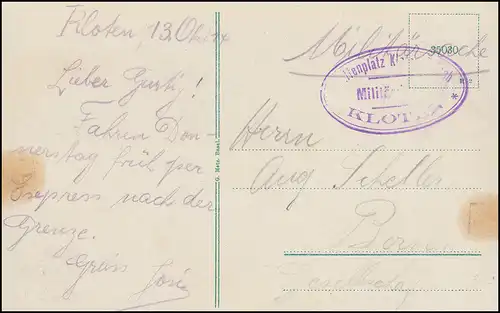 Kloten, 13 Okt 14
Lieber Gusti!
Fahren Don-
nerstag früh per
Express nach der
Grenze.
Gruss
G. Metz, Basel.
Militärsache
35030
Militär
KLOTEN
Herrn
Aug Scheller